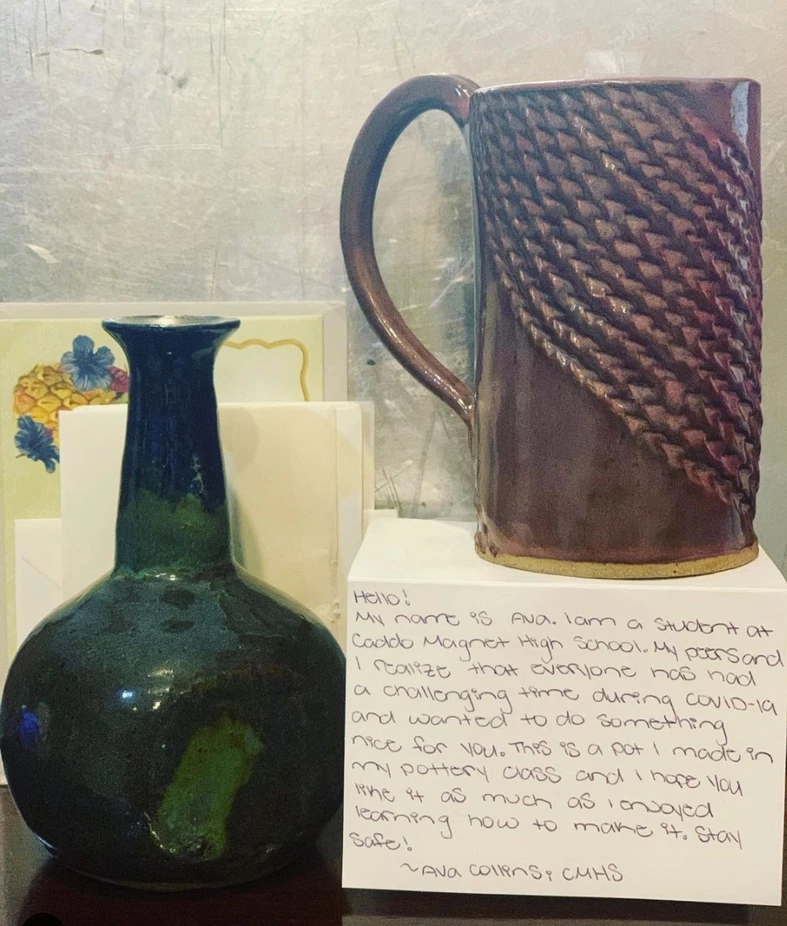 Hello!
My name is Ava. I am a student at
Caddo Magnet High School. My peers and
I realize that everyone has had
a challenging time during COVID-19
and wanted to do something
nice for you. This is a pot I made in
my pottery class and I hope you
like it as much as i enjoyed
learning how to make it. Stay
safe!
~Ava Collins, CMHS